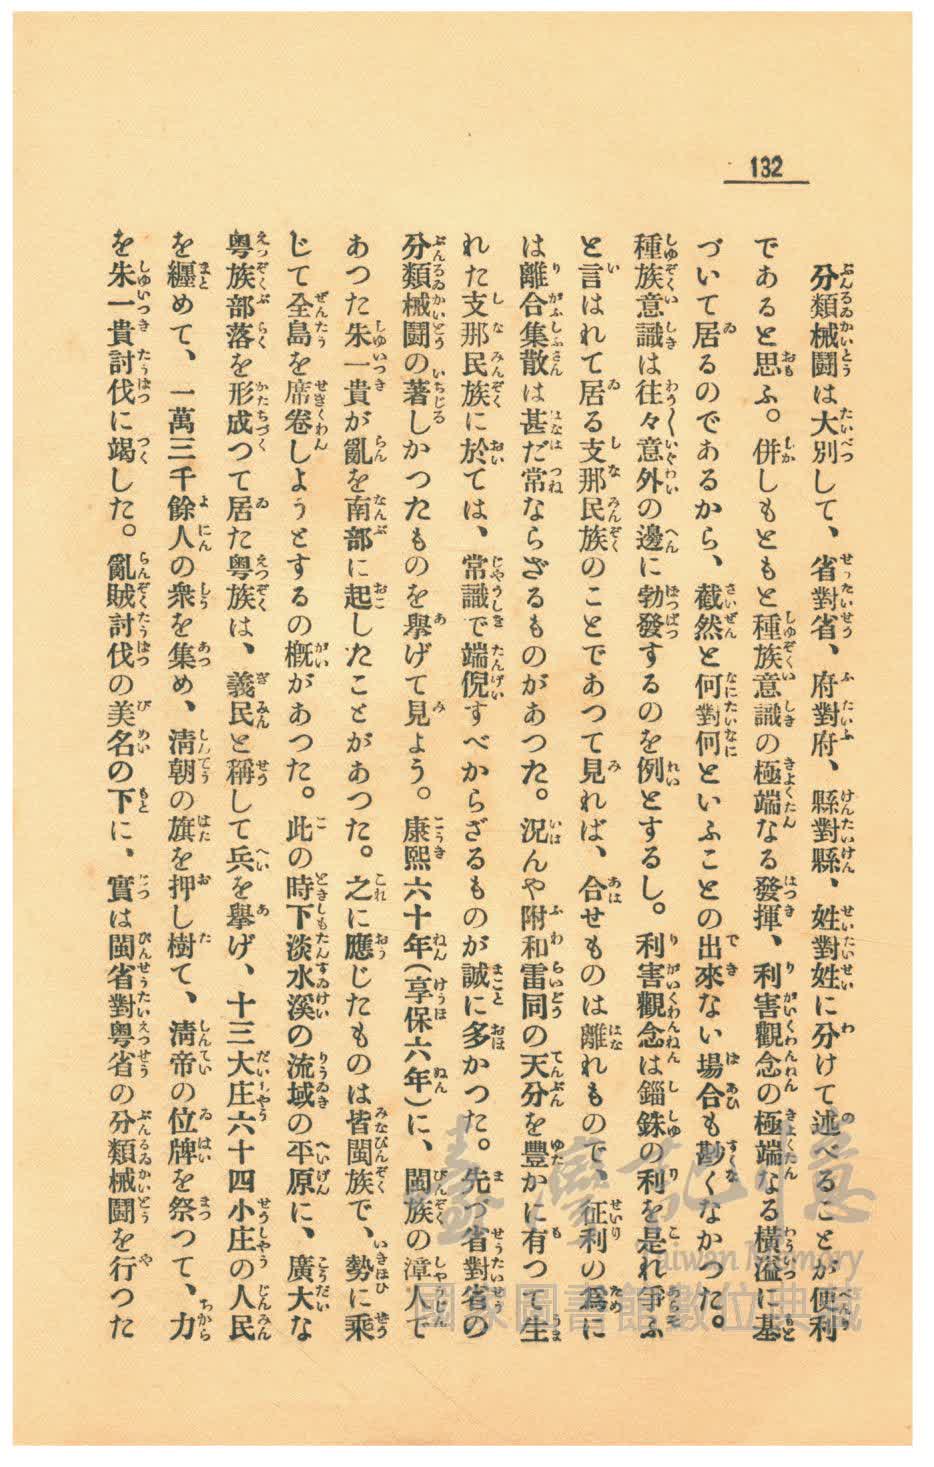 132
分類械鬪は大別して、省對省、府對府、縣對縣、姓對姓に分けて述べることが便利
であると思ふ。併しもともと種族意識の極端なる發揮、利害觀念の極端なる橫溢に基
づいて居るのであるから、截然と何對何といふことの出來ない場合も尠くなかつた。
種族意識は往々意外の邊に勃發するのを例とするし。利害觀念は錙銖の利を是れ爭ふ
と言はれて居る支那民族のことであつて見れば、合せものは離れもので、征利の爲に
は離合集散は甚だ常ならざるものがあつた。況んや附和雷同の天分を豐かに有つて生
れた支那民族に於ては、常識で端倪すべからざるものが誠に多かつた。先づ省對省の
分類械鬪の著しかつたものを擧げて見よう。康熙六十年(享保六年)に、閩族の漳人で
あつた朱一貴が亂を南部に起したことがあつた。之に應じたものは皆閩族で、勢に乘
じて全島を席卷しようとするの槪があつた。此の時下淡水溪の流域の平原に、廣大な
粤族部落を形成つて居た粤族は、義民と稱して兵を擧げ、十三大庄六十四小庄の人民
を纒めて、一萬三千餘人の衆を集め、淸朝の旗を押し樹て、淸帝の位牌を祭つて、力
を朱一貴討伐に竭した。亂賊討伐の美名の下に、實は閩省對粤省の分類械鬪を行つた
臺灣記憶
Taiwan Memory
國家圖書館數位典藏